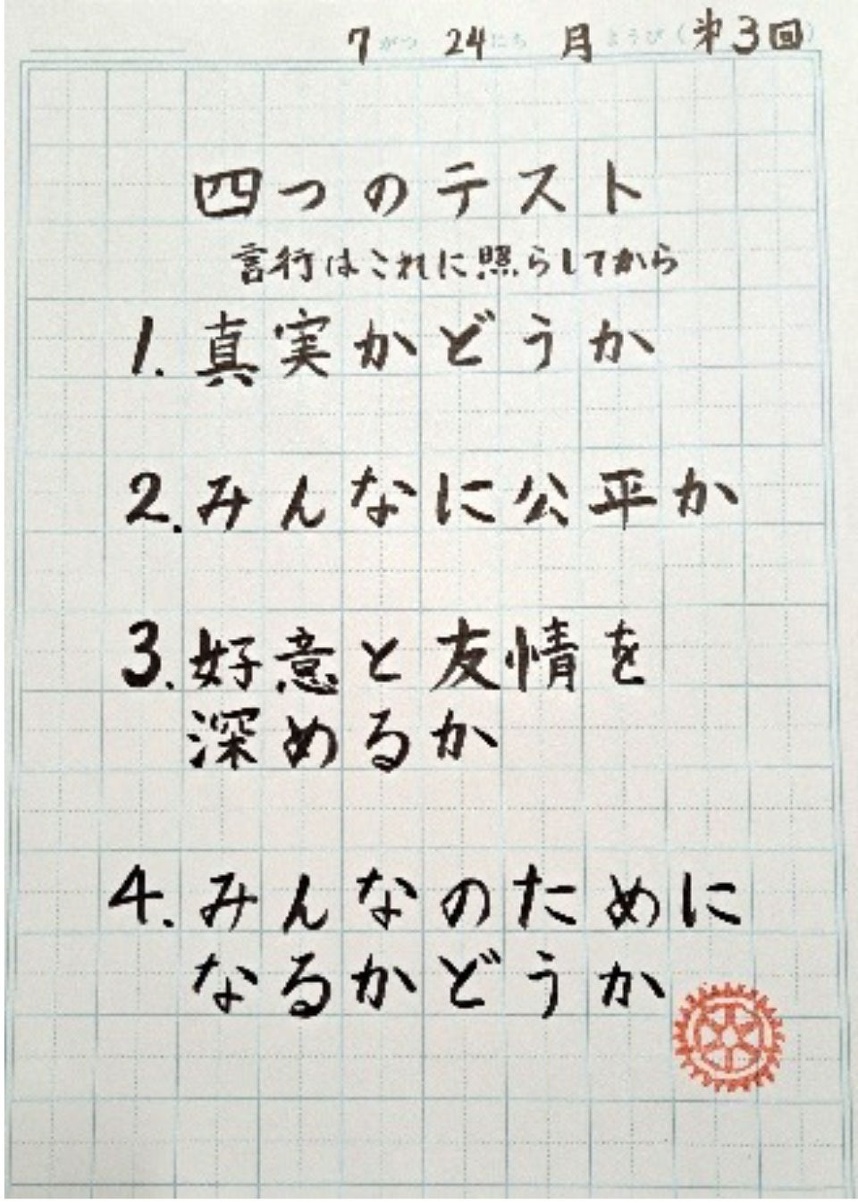 7がつ 24にち 月ようび(第3回)
四つのテスト
言行はこれに照らしてから
1. 真実かどうか
2. みんなに公平か
3. 好意と友情を
深めるか
4. みんなのために
なるかどうか